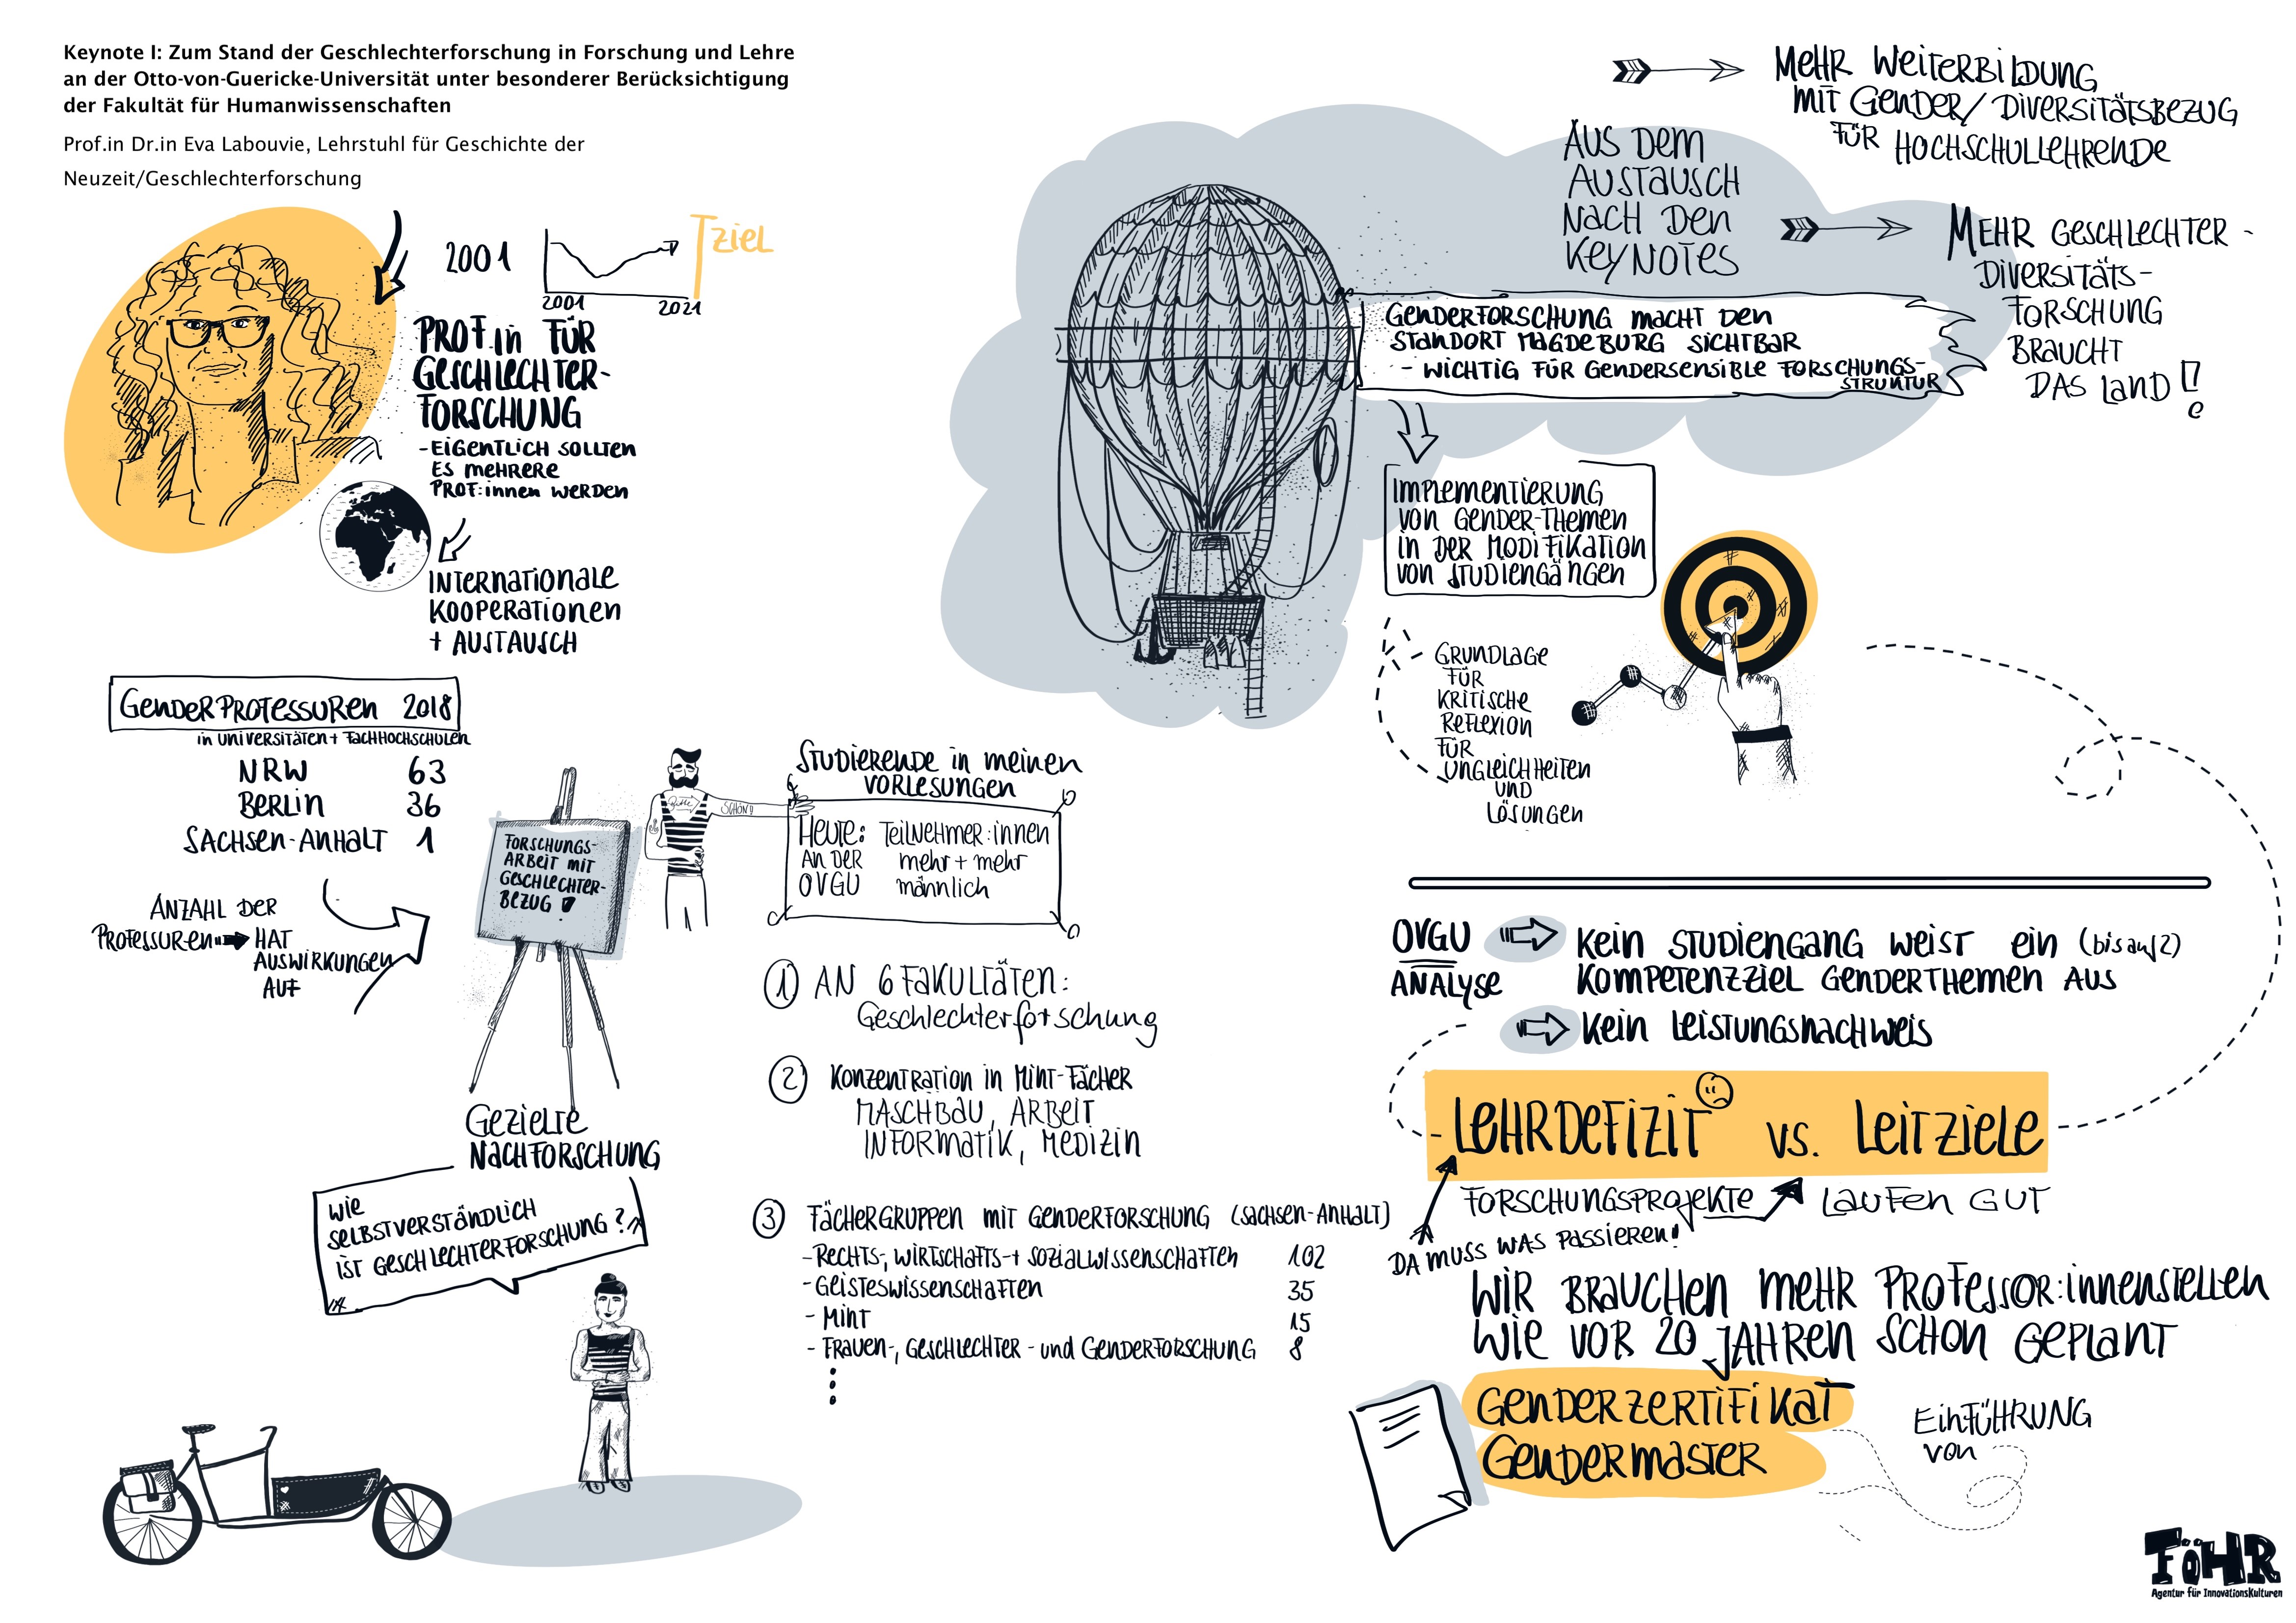 Keynote I: Zum Stand der Geschlechterforschung in Forschung und Lehre
an der Otto-von-Guericke-Universität unter besonderer Berücksichtigung
der Fakultät für Humanwissenschaften
Prof.in Dr.in Eva Labouvie, Lehrstuhl für Geschichte der
Neuzeit/Geschlechterforschung
2001
2001
2021
ZIEL
PROF.in FÜR
GESCHLECHTER-
FORSCHUNG
- EIGENTLICH SOLLTEN
ES MEHRERE
PROF:innen WERDEN
INTERNATIONALE
KOOPERATIONEN
+ AUSTAUSCH
GENDERPROFESSUREN 2018
in UNIVERSITÄTEN + FACHHOCHSCHULEN
NRW 63
BERLIN 36
SACHSEN-ANHALT 1
ANZAHL DER
PROFESSUREN HAT
AUSWIRKUNGEN
AUF
FORSCHUNGS-
ARBEIT MIT
GESCHLECHTER-
BEZUG !
Bitte
SCHÖN!
GEZIELTE
NACHFORSCHUNG
WIE
SELBSTVERSTÄNDLICH
IST GESCHLECHTERFORSCHUNG?
STUDIERENDE in MEINEN
VORLESUNGEN
HEUTE: TEILNEHMER:innen
AN DER mehr + mehr
OVGU männlich
1) AN 6 FAKULTÄTEN:
Geschlechterforschung
2) KONZENTRATION in MINT-FÄCHER
MASCHBAU, ARBEIT
INFORMATIK, MEDIZIN
3 FÄCHERGRUPPEN MIT GENDERFORSCHUNG (SACHSEN-ANHALT)
- RECHTS-, WIRTSCHAFTS- + SOZIALWISSENSCHAFTEN 102
- GEISTESWISSENSCHAFTEN 35
- MINT 15
- FRAUEN-, GESCHLECHTER- und GENDERFORSCHUNG 8
AUS DEM
AUSTAUSCH
NACH DEN
KEYNOTES
MEHR WEITERBILDUNG
MIT GENDER/DIVERSITÄTSBEZUG
FÜR HOCHSCHULLEHRENDE
MEHR GESCHLECHTER-
DIVERSITÄTS-
FORSCHUNG
BRAUCHT
DAS LAND!
GENDERFORSCHUNG MACHT DEN
STANDORT MAGDEBURG SICHTBAR
- WICHTIG FÜR GENDERSENSIBLE FORSCHUNGS-
STRUKTUR
IMPLEMENTIERUNG
VON GENDER-THEMEN
IN DER MODIFIKATION
VON STUDIENGÄNGEN
GRUNDLAGE
FÜR
KRITISCHE
REFLEXION
FÜR
UNGLEICHHEITEN
UND
LÖSUNGEN
OVGU
ANALYSE
KEIN STUDIENGANG WEIST EIN (bis auf 2)
KOMPETENZZIEL GENDERTHEMEN AUS
KEIN LEISTUNGSNACHWEIS
LEHRDEFIZIT VS. LEITZIELE
FORSCHUNGSPROJEKTE LAUFEN GUT
DA MUSS WAS PASSIEREN!
WIR BRAUCHEN MEHR PROFESSOR:innenSTELLEN
WIE VOR 20 JAHREN SCHON GEPLANT
GENDERZERTIFIKAT
GENDERMASTER
EINFÜHRUNG
VON
FÖHR
Agentur für InnovationsKulturen